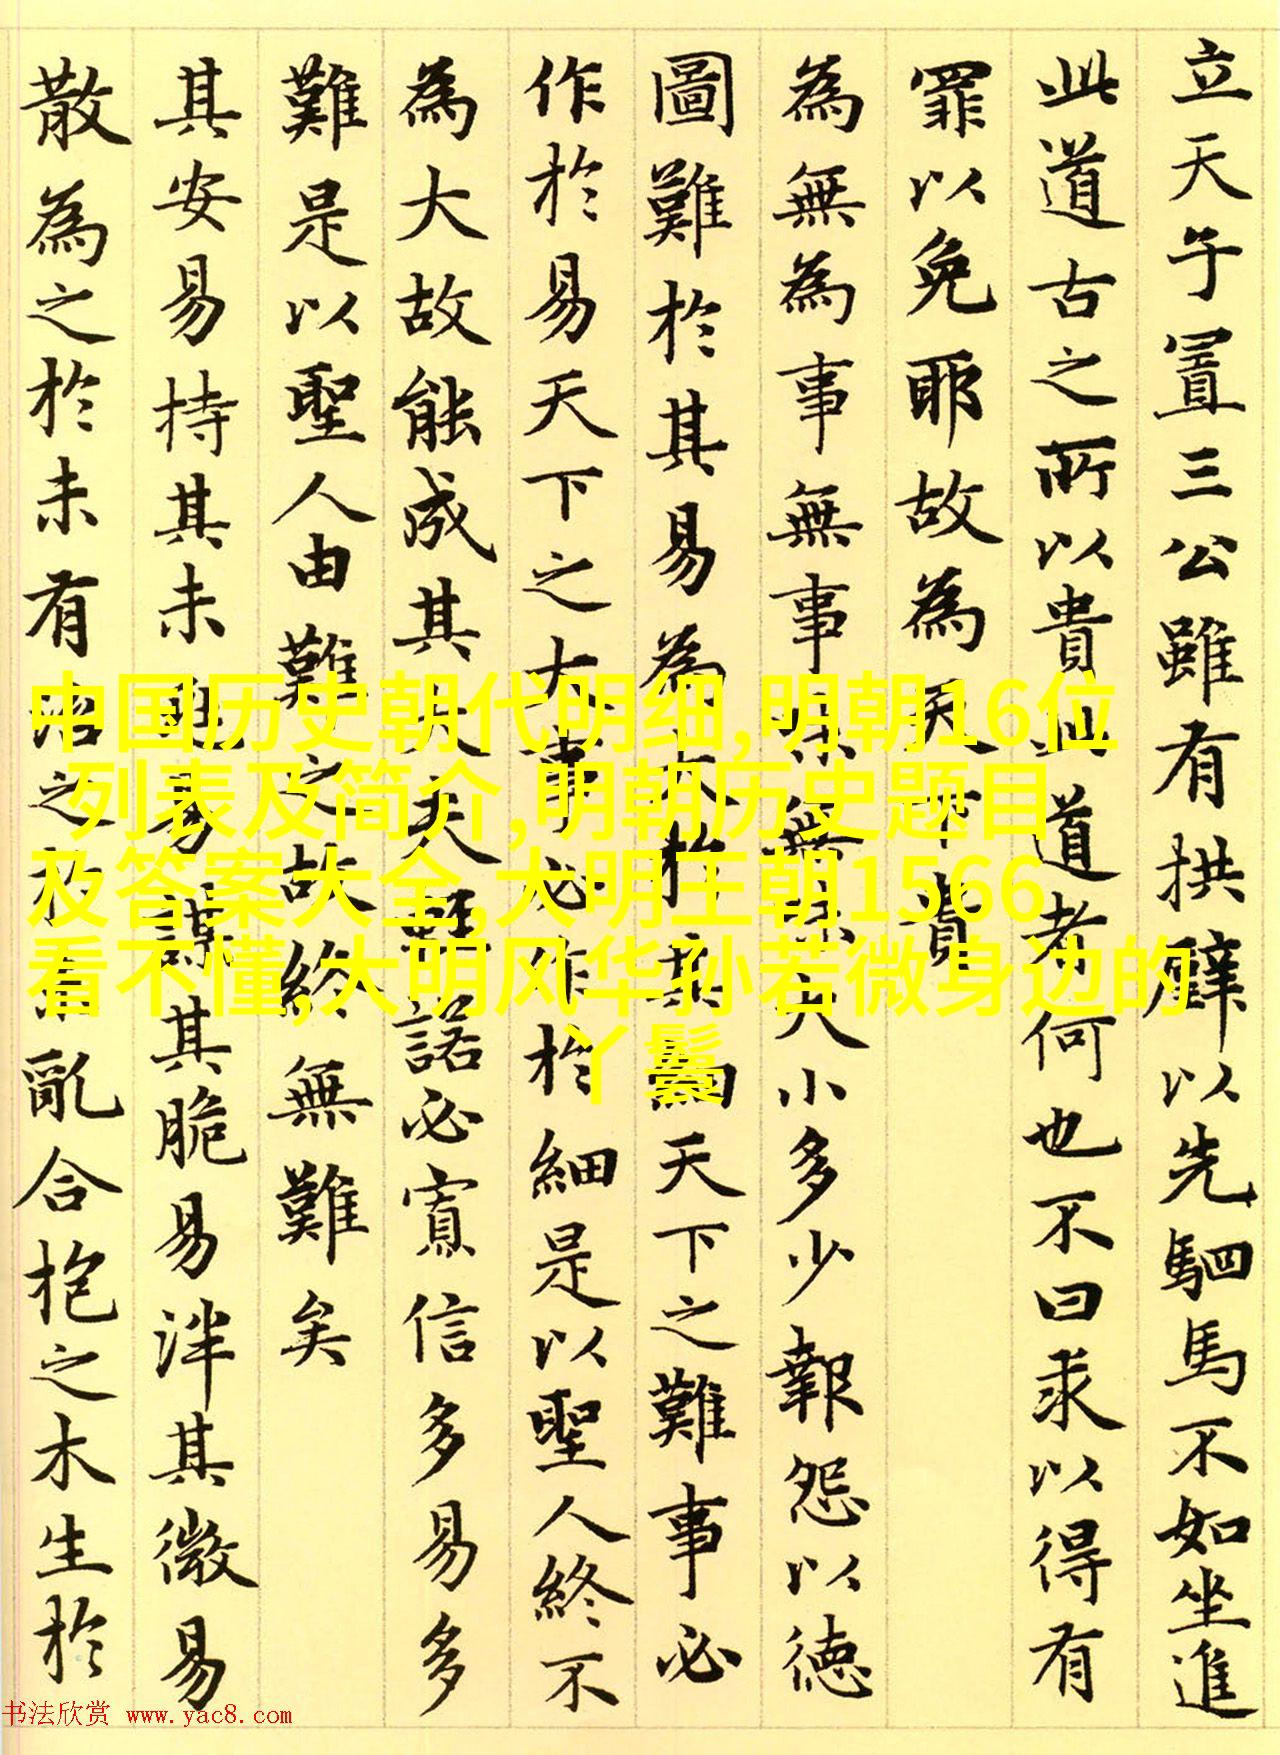 立天子置三公雖有拱璧以先駟馬不如坐進
此道古之所以貴此道者何也不曰求以得有
罪以免耶故為天下貴
為無為事無事味無味大小多少報怨以徳
圖難於其易為大於其細天下之難事必
作於易天下之大事必作於細是以聖人終不
為大故能成其大夫輕諾必寡信多易多
難是以聖人由難之故終無難矣
其安易持其未兆易謀其脆易泮其微易
散為之於未有治之於未亂合抱之木生於
中国历史朝代明细,明朝16位
列表及简介,明朝历史题目
及答案大全,大明王朝1566
看不懂,大明风华孙若微身边的
丫鬟
书法欣赏 www.yac8.com